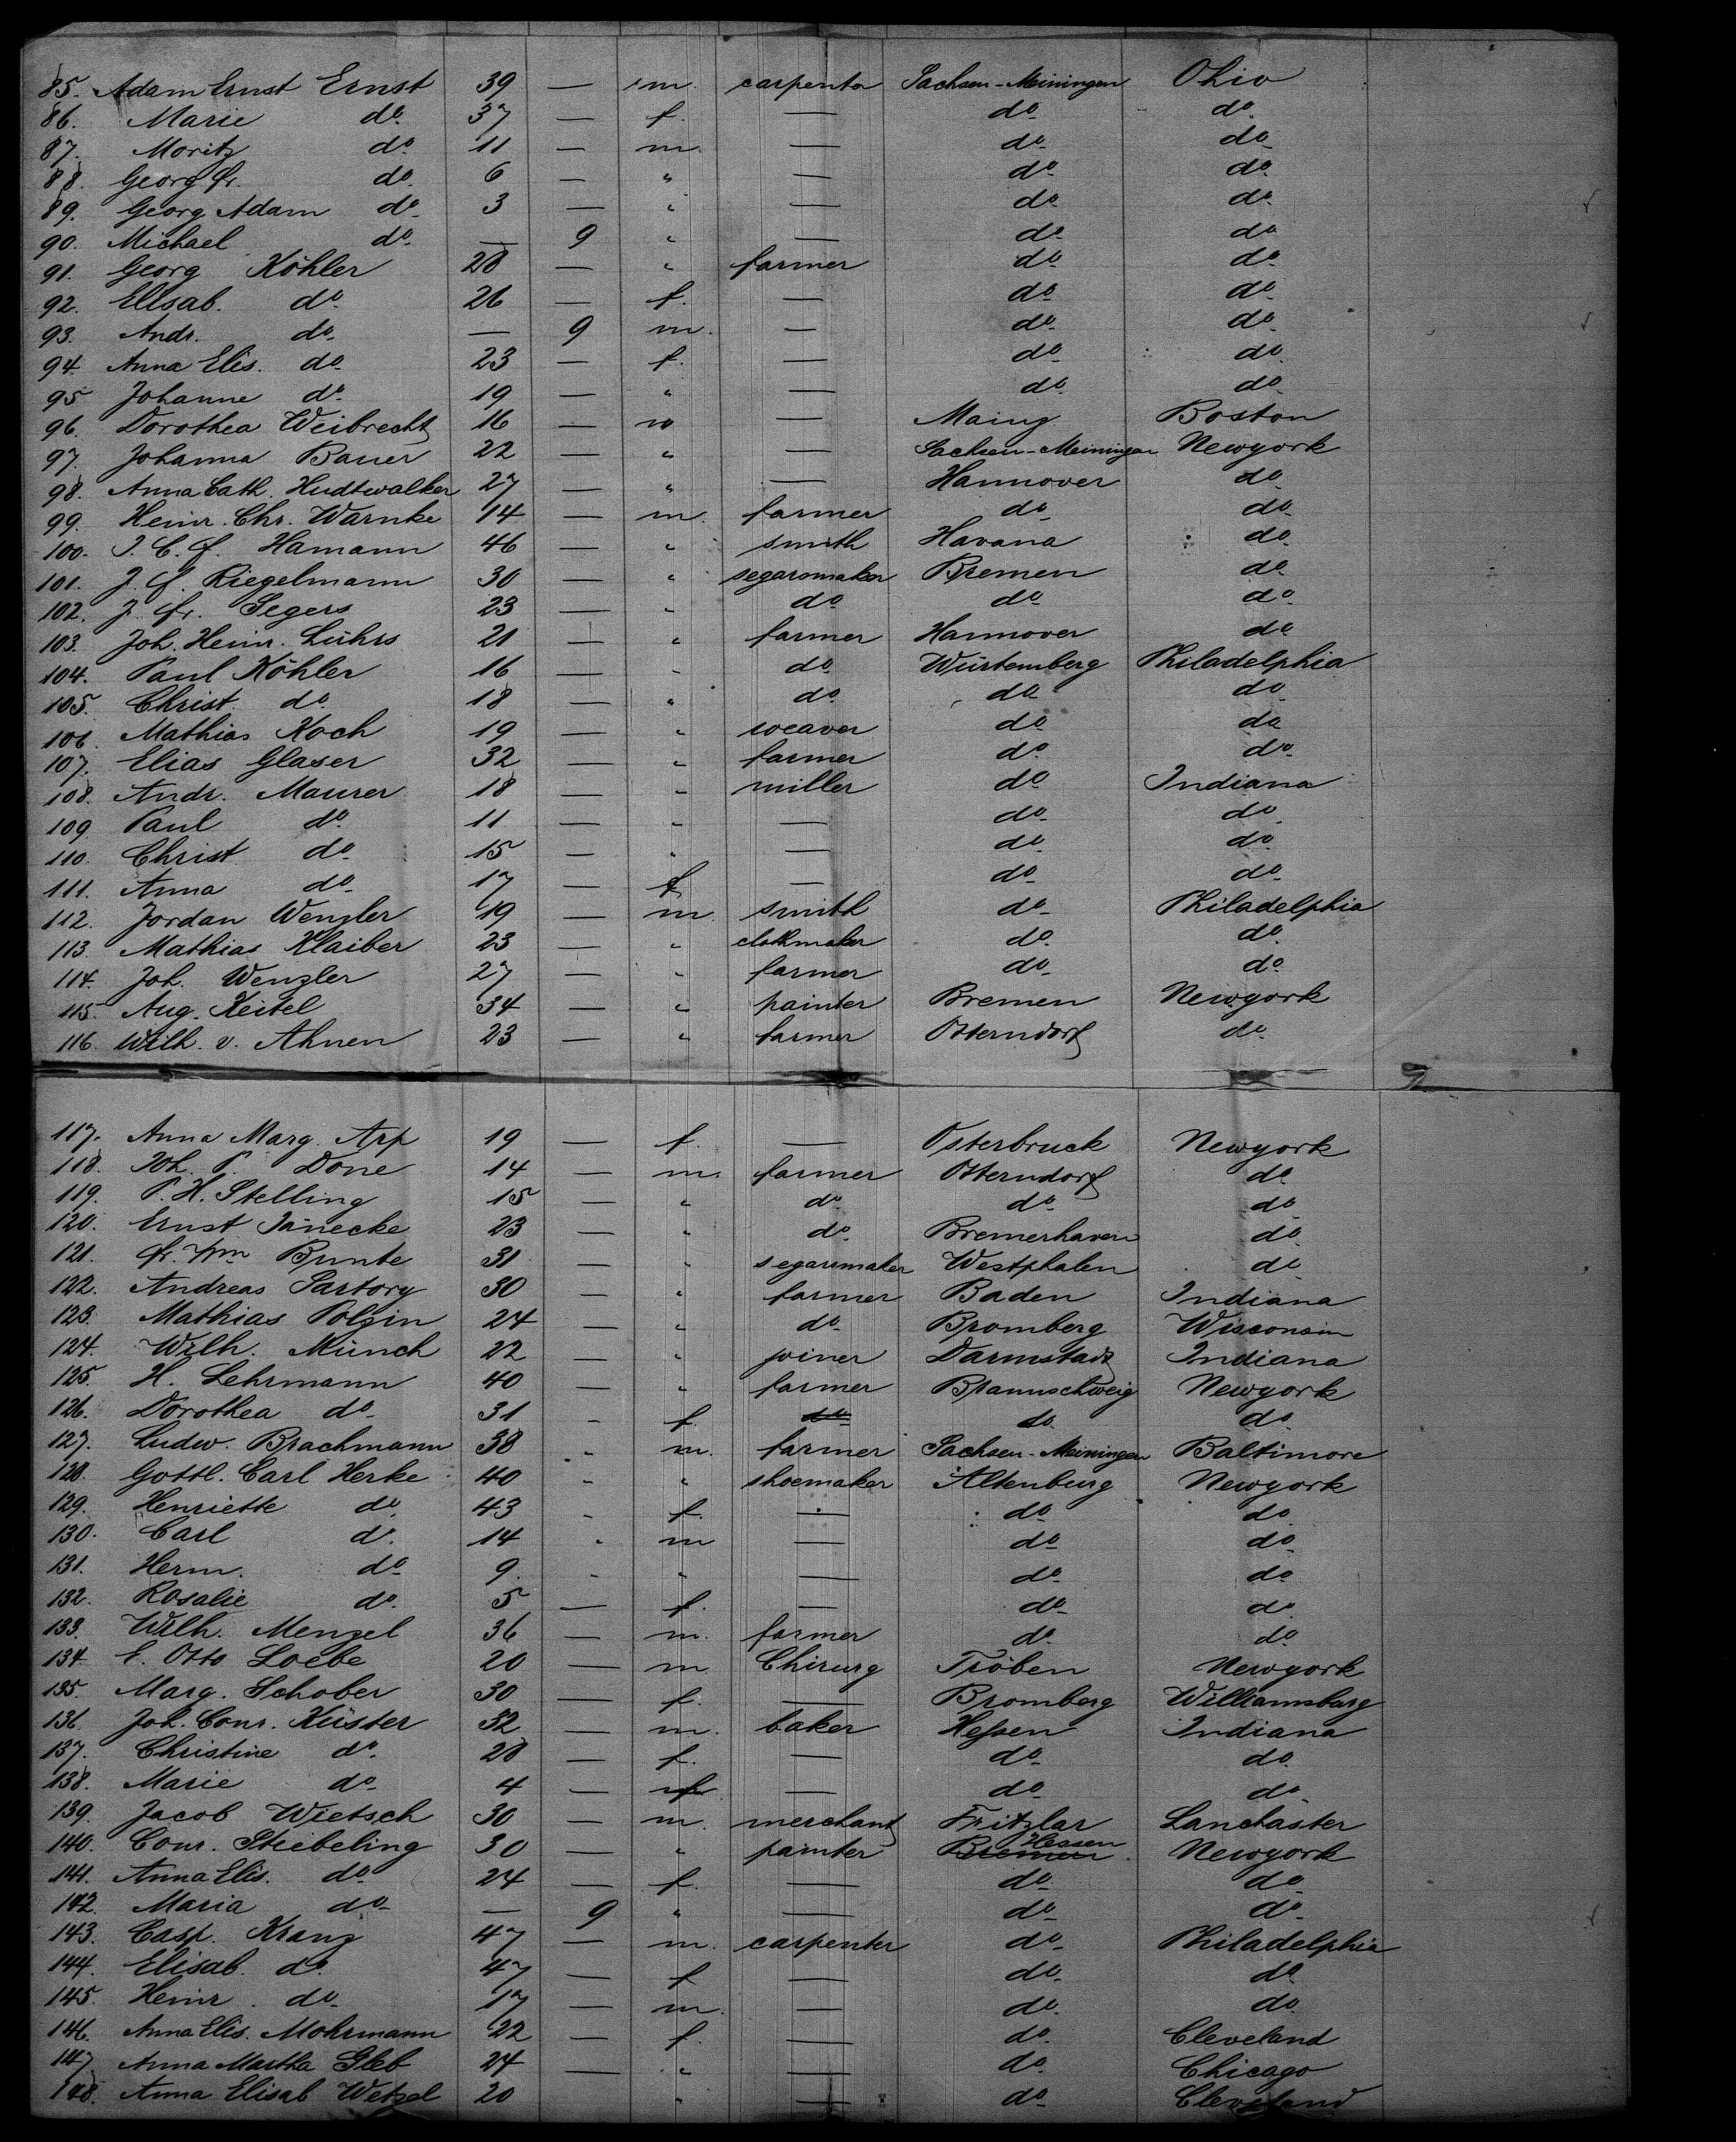 85. Adam Ernst Ernst 39 — m. carpenter Sachsen-Meiningen Ohio
86. Marie do. 37 — f. — do. do.
87. Moritz do. 11 — m. — do. do.
88. Georg Fr. do. 6 — " — do. do.
89. Georg Adam do. 3 — " — do. do.
90. Michael do. — 9 " — do. do.
91. Georg Köhler 28 — " farmer do. do.
92. Elisab. do. 26 — f. — do. do.
93. Andr. do. — 9 m. — do. do.
94. Anna Elis. do. 23 — f. — do. do.
95 Johanne do. 19 — " — do. do.
96. Dorothea Weibrecht 16 — — Mainz Boston
97. Johanna Bauer 22 — " — Sachsen-Meiningen Newyork
98. Anna Cath. Hudtwalker 27 — " — Hannover do.
99. Heinr. Chr. Warnke 14 — m. farmer do. do.
100. J. C. F. Hamann 46 — " smith Havana do.
101. J. F. Riegelmann 30 — " segarsmaker Bremen do.
102. J. Fr. Segers 23 — " do. do. do.
103. Joh. Heinr. Lührs 21 — " farmer Hannover do.
104. Paul Köhler 16 — " do. Würtemberg Philadelphia
105. Christ. do. 18 — " do. do. do.
106. Mathias Koch 19 — " weaver do. do.
107. Elias Glaser 32 — " farmer do. do.
108. Andr. Maurer 18 — " miller do. Indiana
109. Paul do. 11 — " — do. do.
110. Christ do. 15 — " — do. do.
111. Anna do. 17 — f. — do. do.
112. Jordan Wenzler 19 — m. smith do. Philadelphia
113. Mathias Klaiber 23 — " do. do.
114. Joh. Wenzler 27 — " farmer do. do.
115. Aug. Keitel 34 — " painter Bremen Newyork
116. Wilh. v. Ahnen 23 — " farmer Otterndorf do.
117. Anna Marg. Arp 19 — f. — Osterbruck Newyork
118. Joh. P. Done 14 — m. farmer Otterndorf do.
119. P. H. Stelling 15 — " do. do. do.
120. Ernst Jänecke 23 — " do. Bremerhaven do.
121. Fr. Wm Bunte 31 — " segarsmaker Westphalen do.
122. Andreas Sartory 30 — " farmer Baden Indiana
123. Mathias Polzin 24 — " do. Bromberg Wisconsin
124. Wilh. Münch 22 — " joiner Darmstadt Indiana
125. H. Lehrmann 40 — " farmer Braunschweig Newyork
126. Dorothea do. 31 - f. do. do. do.
127. Ludw. Brachmann 38 - m. farmer Sachsen-Meiningen Baltimore
128. Gottl. Carl Herke 40 - " shoemaker Altenburg Newyork
129. Henriette do. 43 - f. — do. do.
130. Carl d. 14 - m — do. do.
131. Herm. do. 9. - " — do. do.
132. Rosalie do. 5 — f. — do. do.
133. Wilh. Menzel 36 — m. farmer do. do.
134. E. Otto Loebe 20 — m. Chirurg Tröben Newyork
135. Marg. Schober 30 — f. — Bromberg Williamsburg
136. Joh. Conr. Küster 32 — m. baker Hessen Indiana
137. Christine do. 28 — f. — do. do.
138. Marie do. 4 — f — do. do.
139. Jacob Wietsch 30 — m. merchant Fritzlar Lanchaster
140. Conr. Stiebeling 30 — " painter Bremen Hessen Newyork
141. Anna Elis. do. 24 — f. — do. do.
142. Maria do. — 9 " — do. do.
143. Casp. Kranz 47 — m. carpenter do. Philadelphia
144. Elisab. do. 47 — f — do. do.
145. Heinr. do. 17 — m. — do. do.
146. Anna Elis. Mohrmann 22 — f. — do. Cleveland
147 Anna Martha Gleb 24 — " — do. Chicago
148. Anna Elisab Wetzel 20 " — do. Cleveland